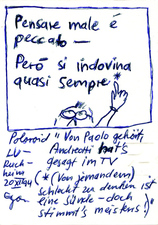 Pensare male é
peccato —
Però si indovina
quasi sempre *
Polaroid " Von Paolo gehört,
LU- Andreotti hat's
Ruch- gesagt im TV
heim (* (Von jemandem)
schlecht zu denken ist
Egon eine Sünde - doch
stimmt's meistens!)